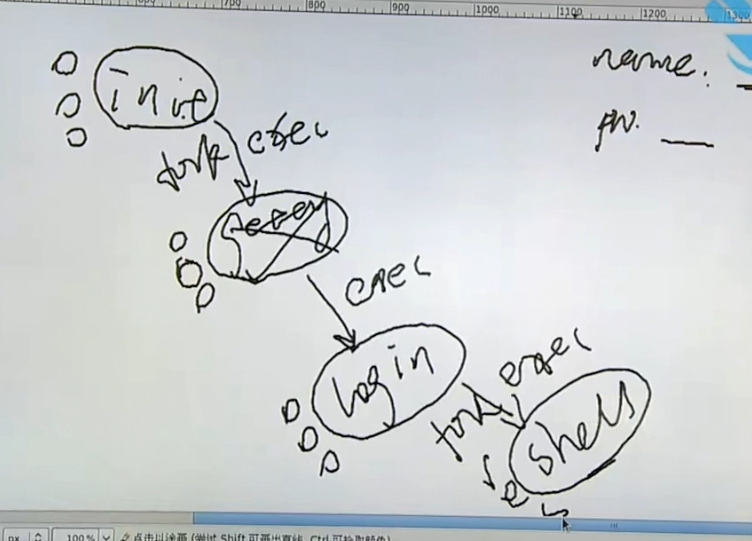 700 800 900 1000 1100 1200 1300
name:
pw.
init
fork exec
getty
exec
login
fork exec
shell
px 100% 点击以涂画 (尝试 Shift 可画出直线, Ctrl 可拾取颜色)